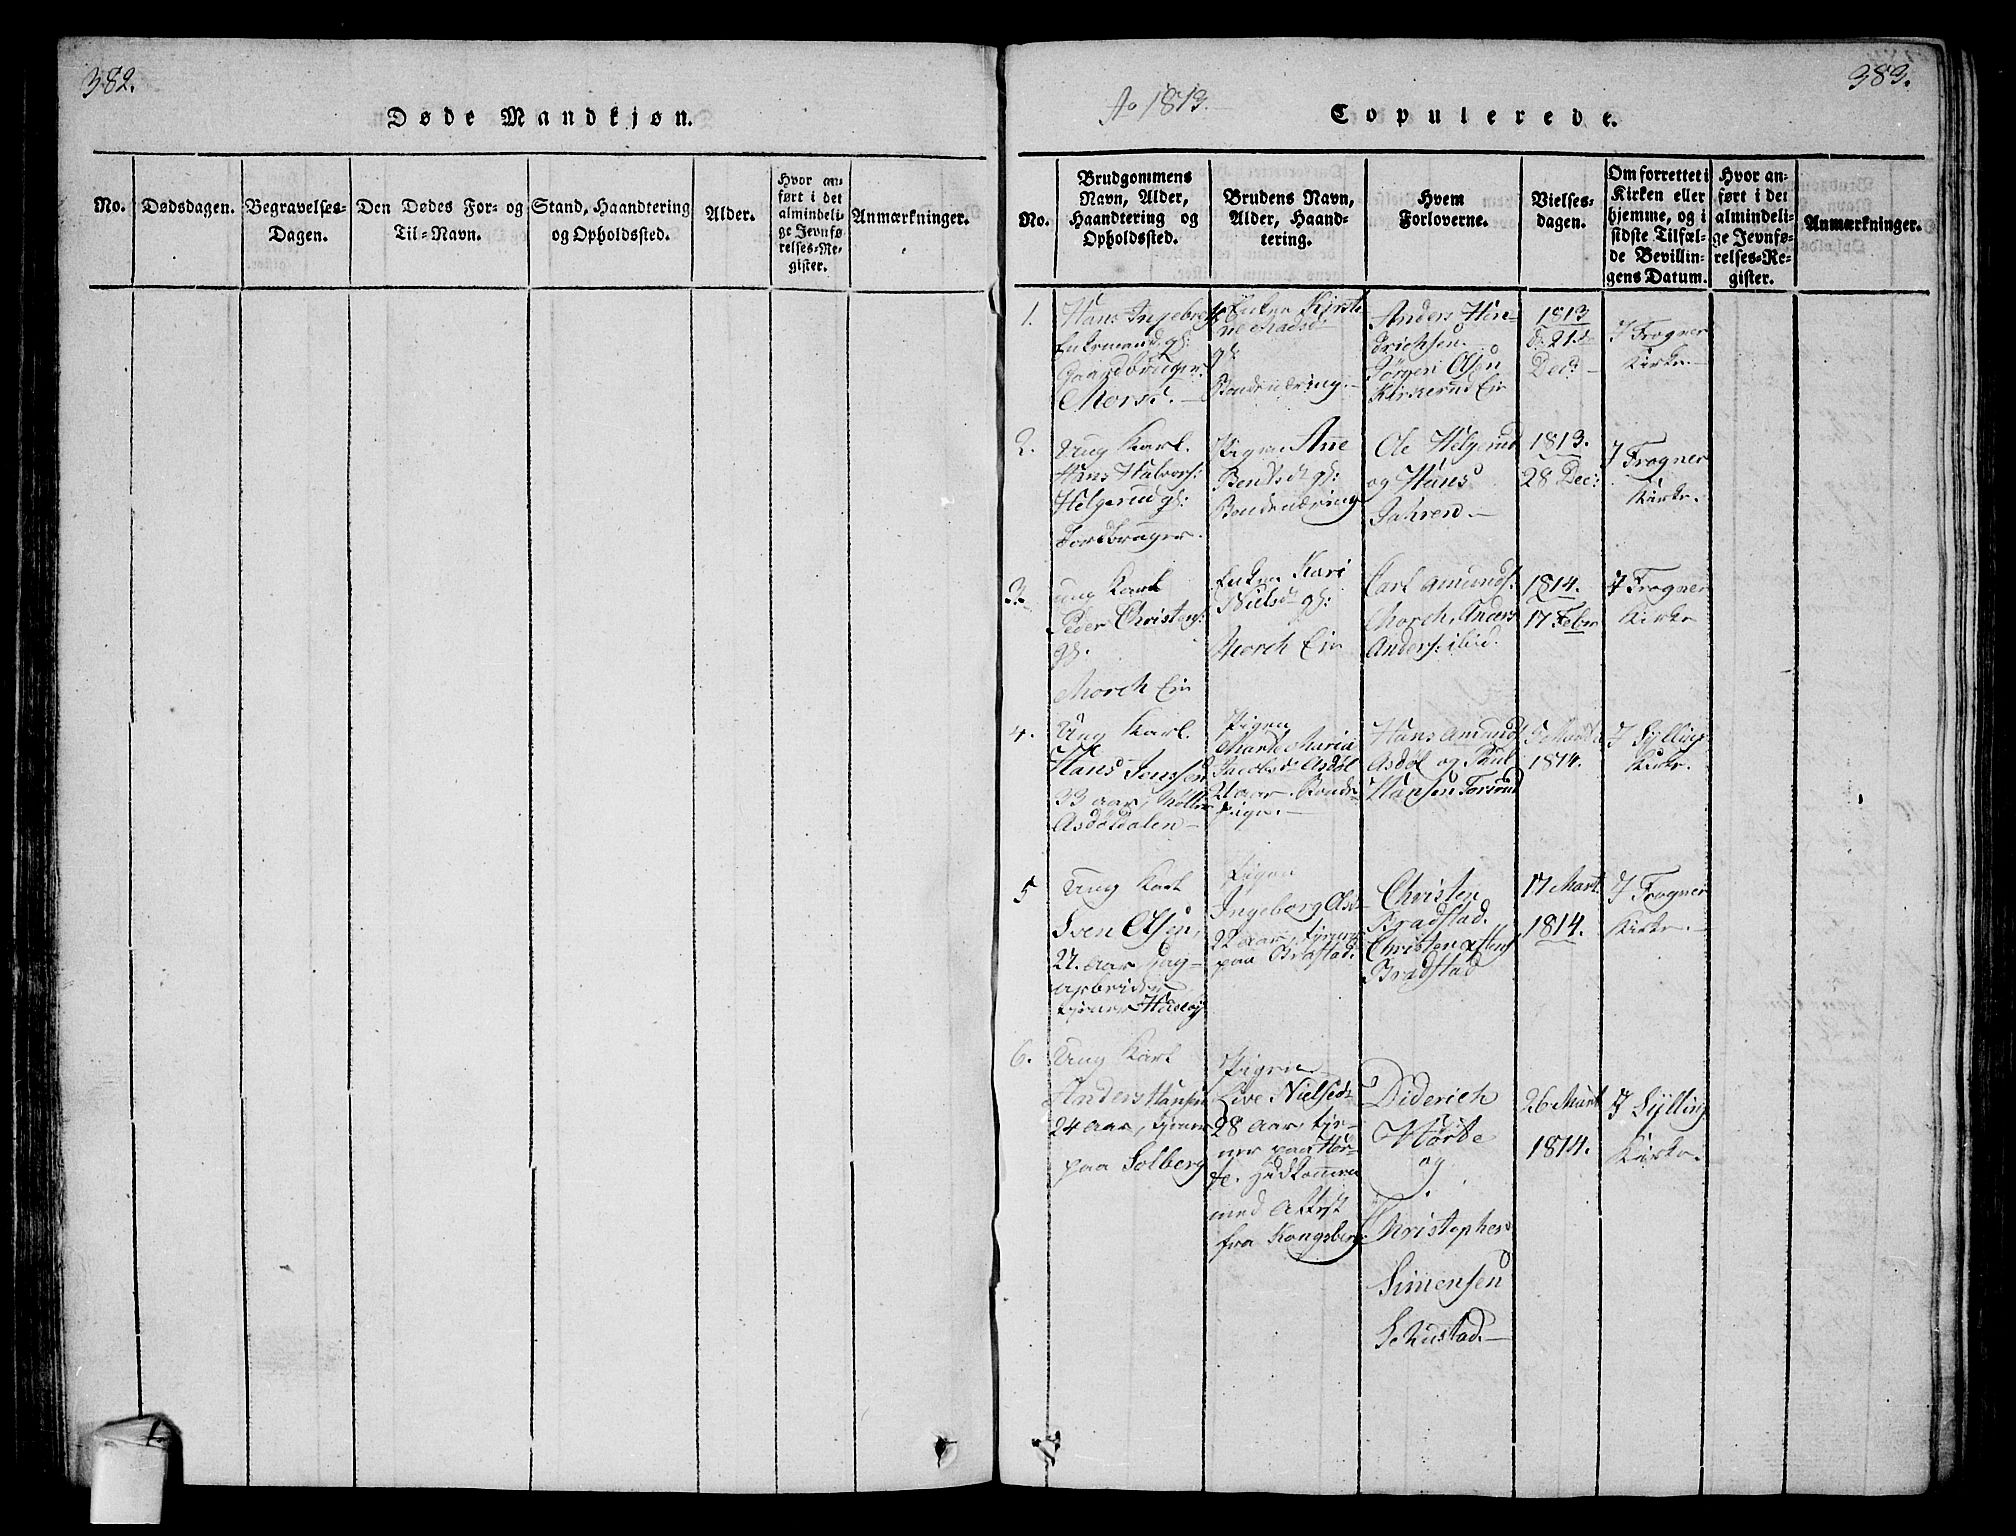 382.
Døde Mandkjøn.
No.
Dødsdagen.
Begravelses-
Dagen.
Den Dødes For- og
Til-Navn.
Stand, Haandtering
og Opholdssted.
Alder.
Hvor an-
ført i det
almindeli-
ge Jevnfø-
relses-Re-
gister.
Anmærkninger.
383.
Ao 1813.
Copulerede.
No.
Brudgommens
Navn, Alder,
Haandtering og
Opholdssted.
Brudens Navn,
Alder, Haand-
tering.
Hvem
Forloverne.
Vielses-
dagen.
Om forrettet i
Kirken eller
hjemme, og i
sidste Tilfæl-
de Bevillin-
gens Datum.
Hvor an-
ført i det
almindeli-
ge Jevnfø-
relses-Re-
gister.
Anmærkninger.
1.
Hans
Enkemand gl:
Gaardbruger
Enken Kirsti-
ne Madsd
gl:
Anders Hen-
drichsen
Jørgen Olsen
Kirkerud Eie
1813
d: 21de
Dec:
I Frogner
Kirke.
2.
Ung Karl.
Hans Halvors:
Helgerud gl:
Jordbruger.
Pigen Anne
Bentsdt gl:
Ole Helgerud
og Hans
Jahren
1813.
28 Dec:
I Frogner
Kirke.
3.
ung Karl
Peder Christens:
gl:
Morch Eie
Enken Kari
Nielsdt gl:
Morch Eie
Carl Amunds:
Morch, Anders
Anders: ibid.
1814.
17 Febr
I Frogner
Kirke
4.
Ung Karl.
Hans Jenssen
33 aar, Møller
Asdøldalen
Pigen
Marte Maria
Jacobsdt Asdøl
21 aar. Bonde-
pige.
Hans Amunds
Asdøl og Poul
Hansen Torsrud
1814.
I Sylling
Kirke.
5
Ung Karl
Sven Olsen,
21. aar Dag-
arbeider
tjener
Pigen
Ingeborg Olsd
22 aar, tjener
paa Bradstad.
Christen
Bradstad.
Christen
Bradstad
17 Mart.
1814.
I Frogner
Kirke.
6.
Ung Karl
Anders Hansen
24 aar, tjener
paa Solberg
Pigen
Live Nielsdt
28 aar, tje-
ner paa Hør-
te. Hidkommen
med Attest
fra Kongsberg
Diderich
Hørte
og
Christopher
Simensen
Sehustad.
26 Mart
1814.
I Sylling
Kirke.